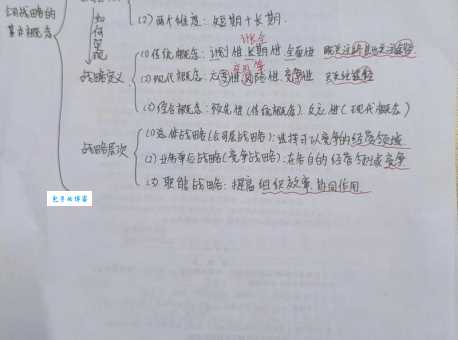 公司战略的
基本概念
如何实现
(2)两个维度：短期+长期.
战略定义
计长全
(1)传统概念：计划性 长期性 全面性 既关注终点也关注途径
(2)现代概念：应变性 风险性 竞争性 只关注途径
(3)综合概念：预先性(传统概念).反应性(现代概念)
战略层次
(1)总体战略(公司层战略)：选择可以竞争的经营领域
(2)业务单位战略(竞争战略)：在各自的经营领域竞争
(3)职能战略：提高组织效率 协同作用